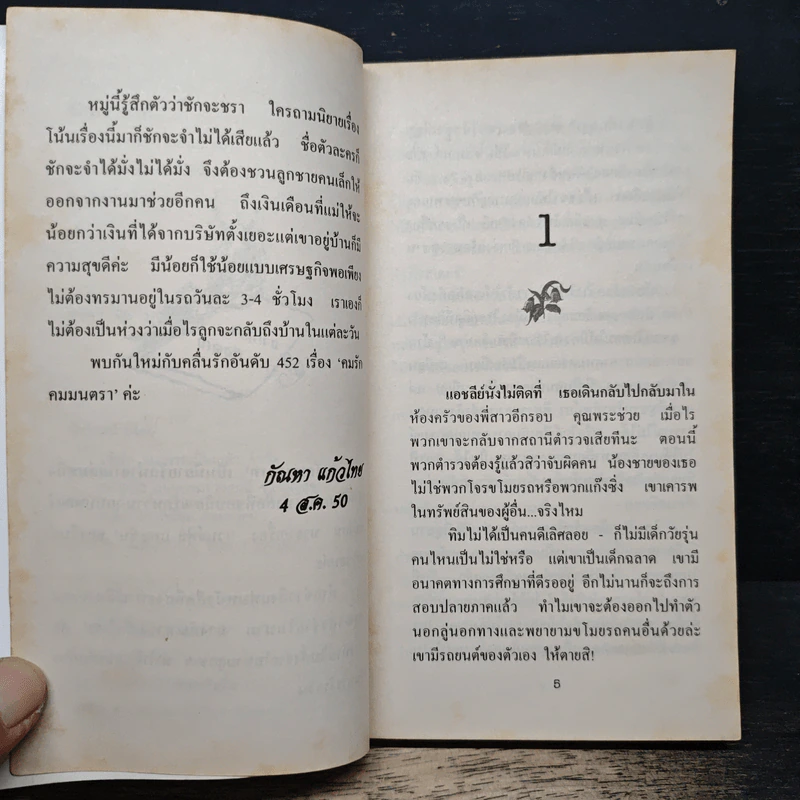 หมู่นี้รู้สึกตัวว่าชักจะชรา ใครถามนิยายเรื่อง
โน้นเรื่องนี้มาก็ชักจะจำไม่ได้เสียแล้ว ชื่อตัวละครก็
ชักจะจำได้มั่งไม่ได้มั่ง จึงต้องชวนลูกชายคนเล็กให้
ออกจากงานมาช่วยอีกคน ถึงเงินเดือนที่แม่ให้จะ
น้อยกว่าเงินที่ได้จากบริษัทตั้งเยอะแต่เขาอยู่บ้านก็มี
ความสุขดีค่ะ มีน้อยก็ใช้น้อยแบบเศรษฐกิจพอเพียง
ไม่ต้องทรมานอยู่ในรถวันละ 3-4 ชั่วโมง เราเองก็
ไม่ต้องเป็นห่วงว่าเมื่อไรลูกจะกลับถึงบ้านในแต่ละวัน
พบกันใหม่กับคลื่นรักอันดับ 452 เรื่อง ‘คมรัก
คมมนตรา’ ค่ะ
กัณหา แก้วไทย
4 ส.ค. 50
1
แอชลีย์นั่งไม่ติดที่ เธอเดินกลับไปกลับมาใน
ห้องครัวของพี่สาวอีกรอบ คุณพระช่วย เมื่อไร
พวกเขาจะกลับจากสถานีตำรวจเสียทีนะ ตอนนี้
พวกตำรวจต้องรู้แล้วสิว่าจับผิดคน น้องชายของเธอ
ไม่ใช่พวกโจรขโมยรถหรือพวกแก๊งซิ่ง เขาเคารพ
ในทรัพย์สินของผู้อื่น...จริงไหม
ทิมไม่ได้เป็นคนดีเลิศลอย - ก็ไม่มีเด็กวัยรุ่น
คนไหนเป็นไม่ใช่หรือ แต่เขาเป็นเด็กฉลาด เขามี
อนาคตทางการศึกษาที่ดีรออยู่ อีกไม่นานก็จะถึงการ
สอบปลายภาคแล้ว ทำไมเขาจะต้องออกไปทำตัว
นอกลู่นอกทางและพยายามขโมยรถคนอื่นด้วยล่ะ
เขามีรถยนต์ของตัวเอง ให้ตายสิ!
5